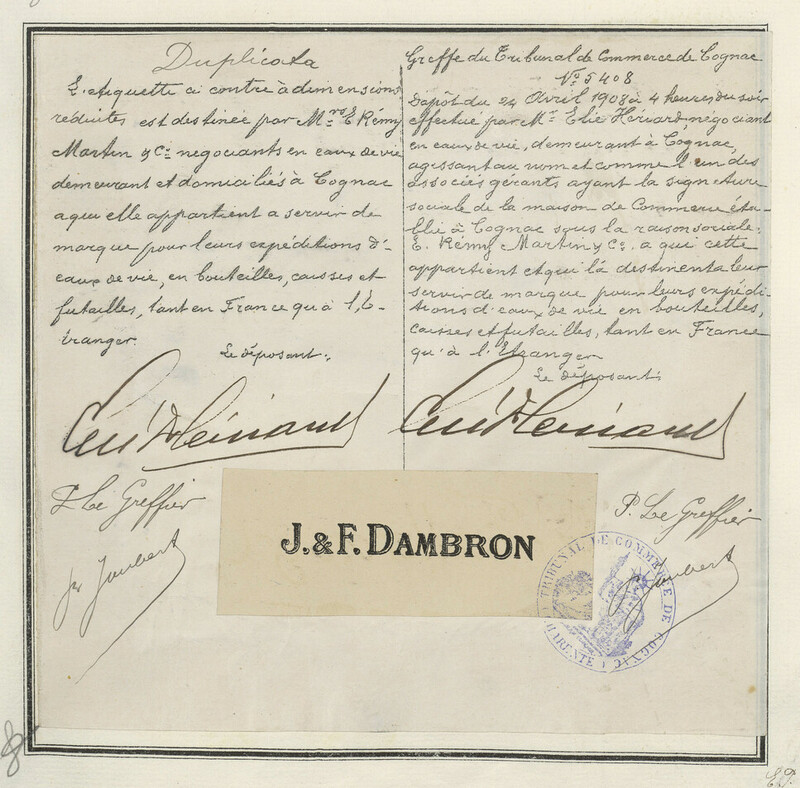 Duplicata
L'étiquette ci contre à dimensions
réduites est destinée par Mrs E. Rémy
Martin & Cie négociants en eaux de vie
demeurant et domiciliés à Cognac
a qui elle appartient a servir de
marque pour leurs expéditions d'
eaux de vie, en bouteilles, caisses et
futailles, tant en France qu'à l'É-
tranger.
Le déposant:
P. Le Greffier
Joubert
Greffe du Tribunal de Commerce de Cognac
No 5408
Dépôt du 24 Avril 1908 à 4 heures du soir
effectué par Mr Elie Hériard, négociant
en eaux de vie, demeurant à Cognac,
agissant au nom et comme l'un des
associés gérants ayant la signature
sociale de la maison de Commerce éta-
blie à Cognac sous la raison sociale:
E. Rémy Martin & Co. a qui cette
appartient et qui la destinent a leur
servir de marque pour leurs expédi-
tions d'eaux de vie en bouteilles,
caisses et futailles, tant en France
qu'à l'Etranger
Le déposant:
P. Le Greffier
Joubert
J. & F. DAMBRON
TRIBUNAL DE COMMERCE DE COGNAC
CHARENTE